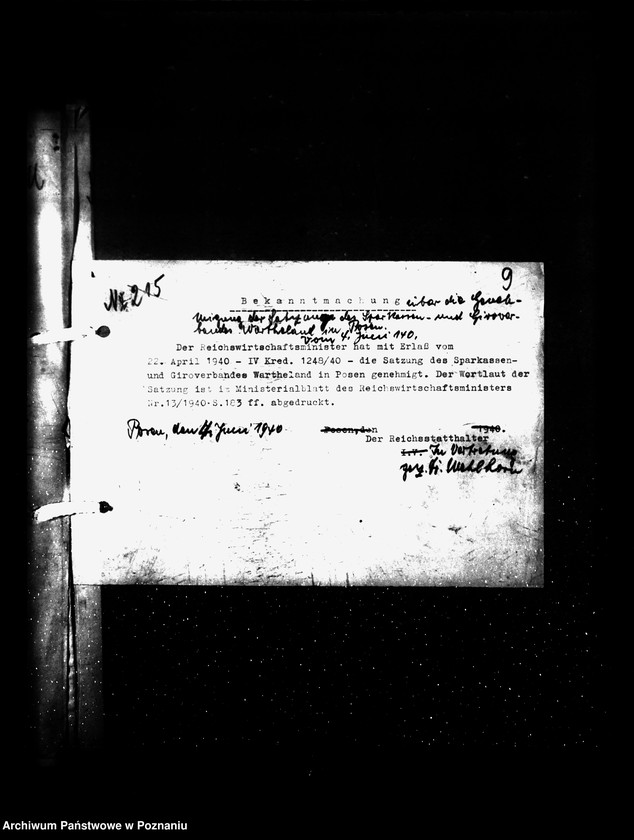 9
Nr. 215
Bekanntmachung über die Geneh-
migung der Satzung des Sparkassen- und Girover-
bandes Wartheland in Posen.
Vom 4. Juni 140.
Der Reichswirtschaftsminister hat mit Erlaß vom
22. April 1940 - IV Kred. 1248/40 - die Satzung des Sparkassen-
und Giroverbandes Wartheland in Posen genehmigt. Der Wortlaut der
Satzung ist im Ministerialblatt des Reichswirtschaftsministers
Nr.13/1940 S.183 ff. abgedruckt.
Posen, den 4. Juni 1940
Posen, den 1940.
Der Reichsstatthalter
I.V. In Vertretung
gez. Dr. Mehlhorn
Archiwum Państwowe w Poznaniu